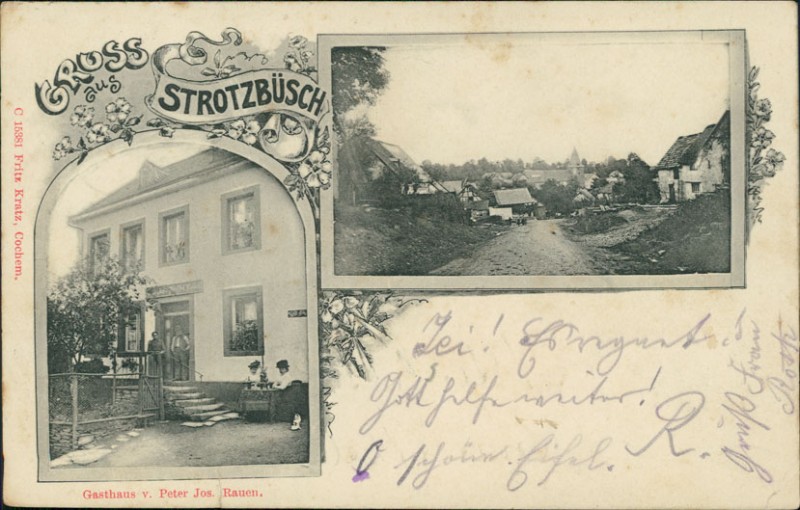 GRUSS
aus
STROTZBÜSCH
C 15381 Fritz Kratz, Cochem.
Gasthaus v. Peter Jos. Rauen.
! Es regnet!
Gott helfe weiter!
O schöne Eifel. R.
Frau